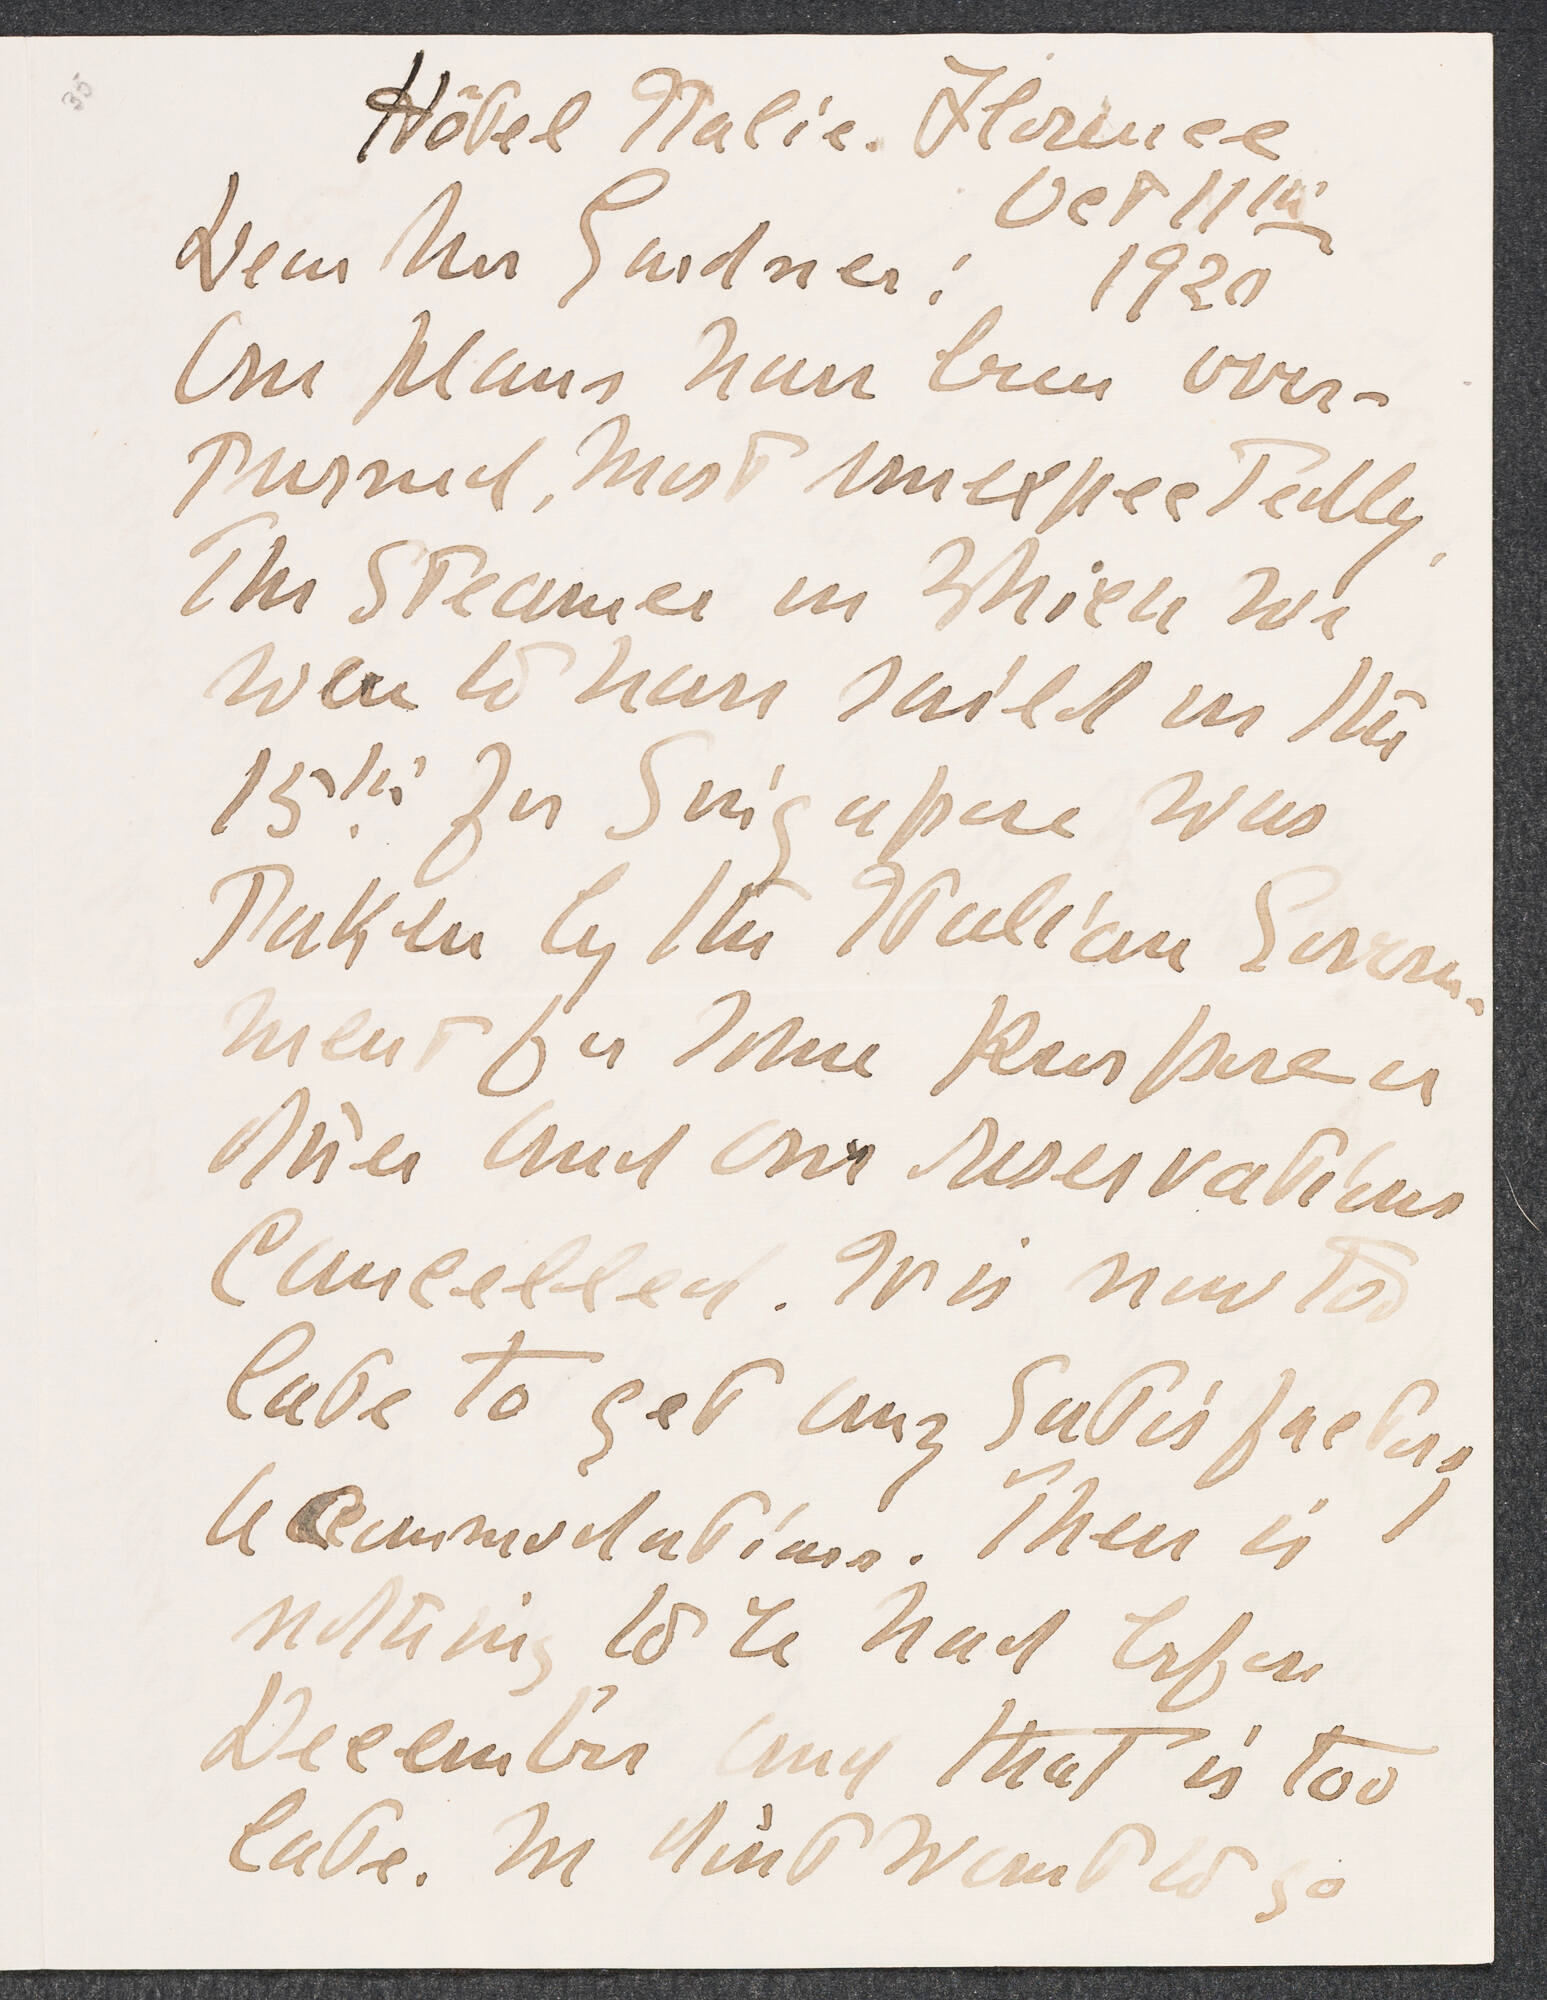 35
Hôtel Italie. Florence
Oct 11th
Dear Mrs Gardner: 1920
Our plans have been over-
turned, most unexpectedly.
The steamer on which we
were to have sailed on the
15th for Singapore was
taken by the Italian Govern-
ment for some purpose or
other and our reservations
cancelled. It is now too
late to get any satisfactory
accommodations. There is
nothing to be had before
December and that is too
late. We don't want to go